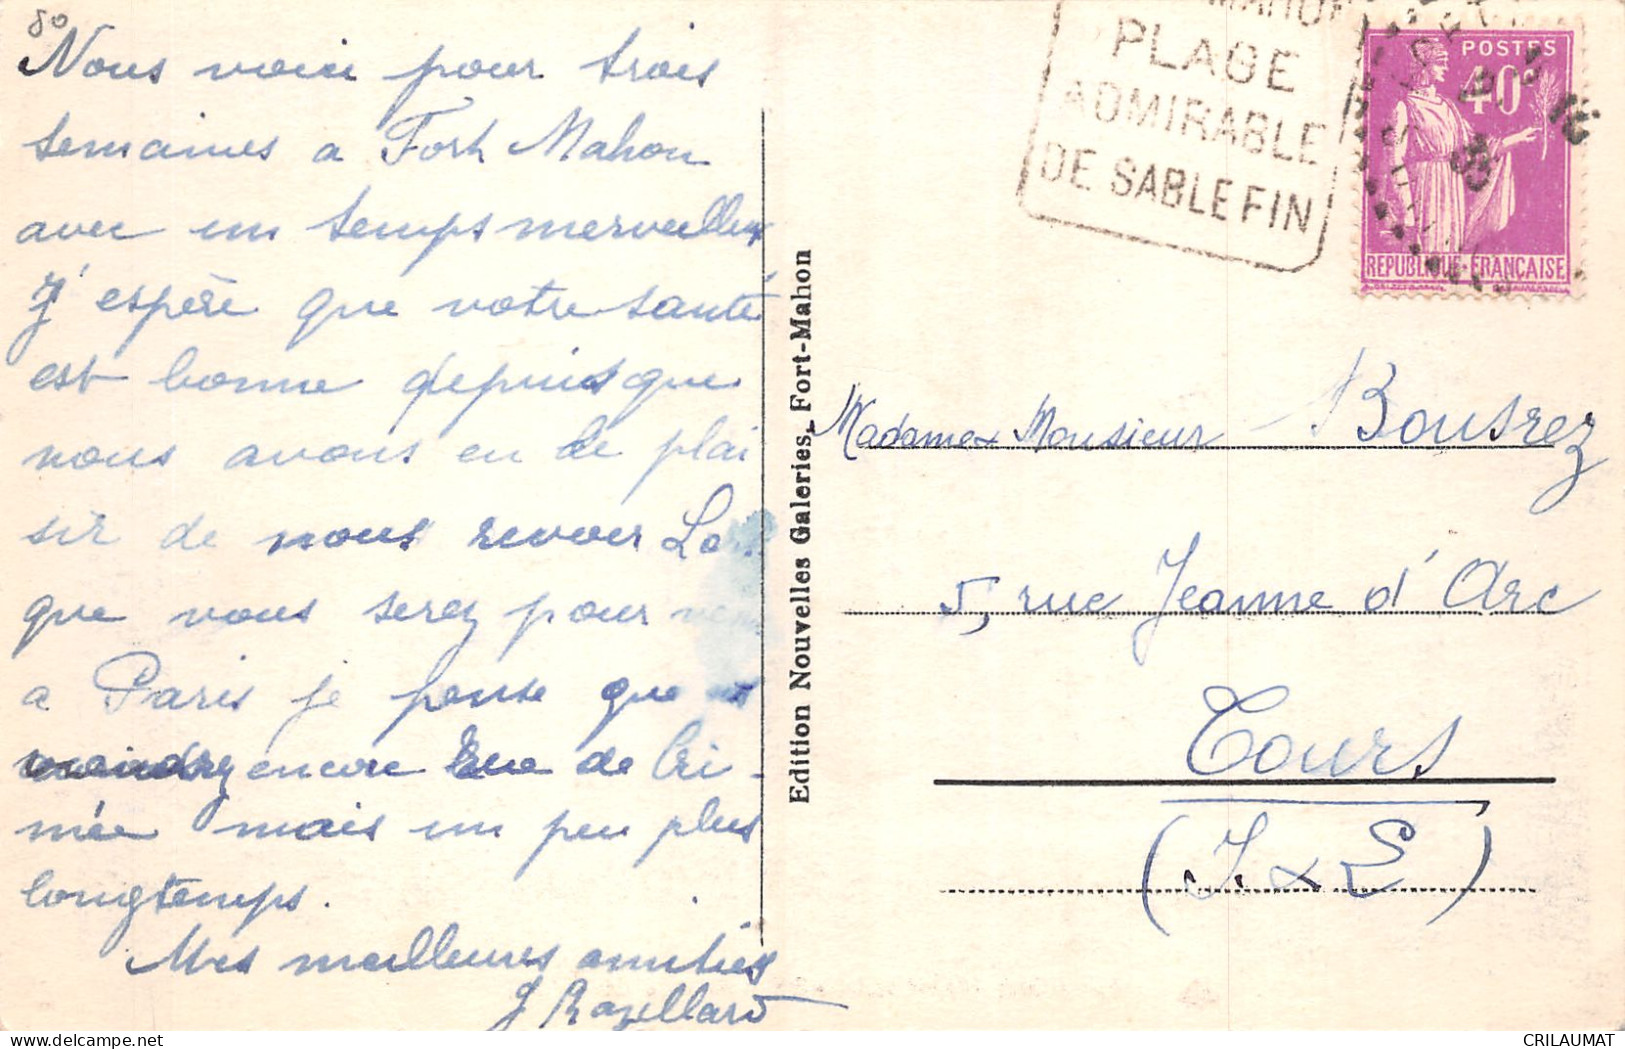 80
Nous voici pour trois
semaines a Fort Mahon
avec un temps merveilleux
J'espère que votre santé
est bonne depuis que
nous avons eu le plai
sir de nous revoir Lors
que vous serez pour venir
a Paris je pense que
viendrez encore Rue de Cri-
mée mais un peu plus
longtemps.
Mes meilleures amitiés
MAHON
PLAGE
ADMIRABLE
DE SABLE FIN
POSTES
40
REPUBLIQUE FRANÇAISE
Edition Nouvelles Galeries, Fort-Mahon
Madame & Monsieur Bousrez
5, rue Jeanne d'Arc
Tours
(I. & L)
CRILAUMAT